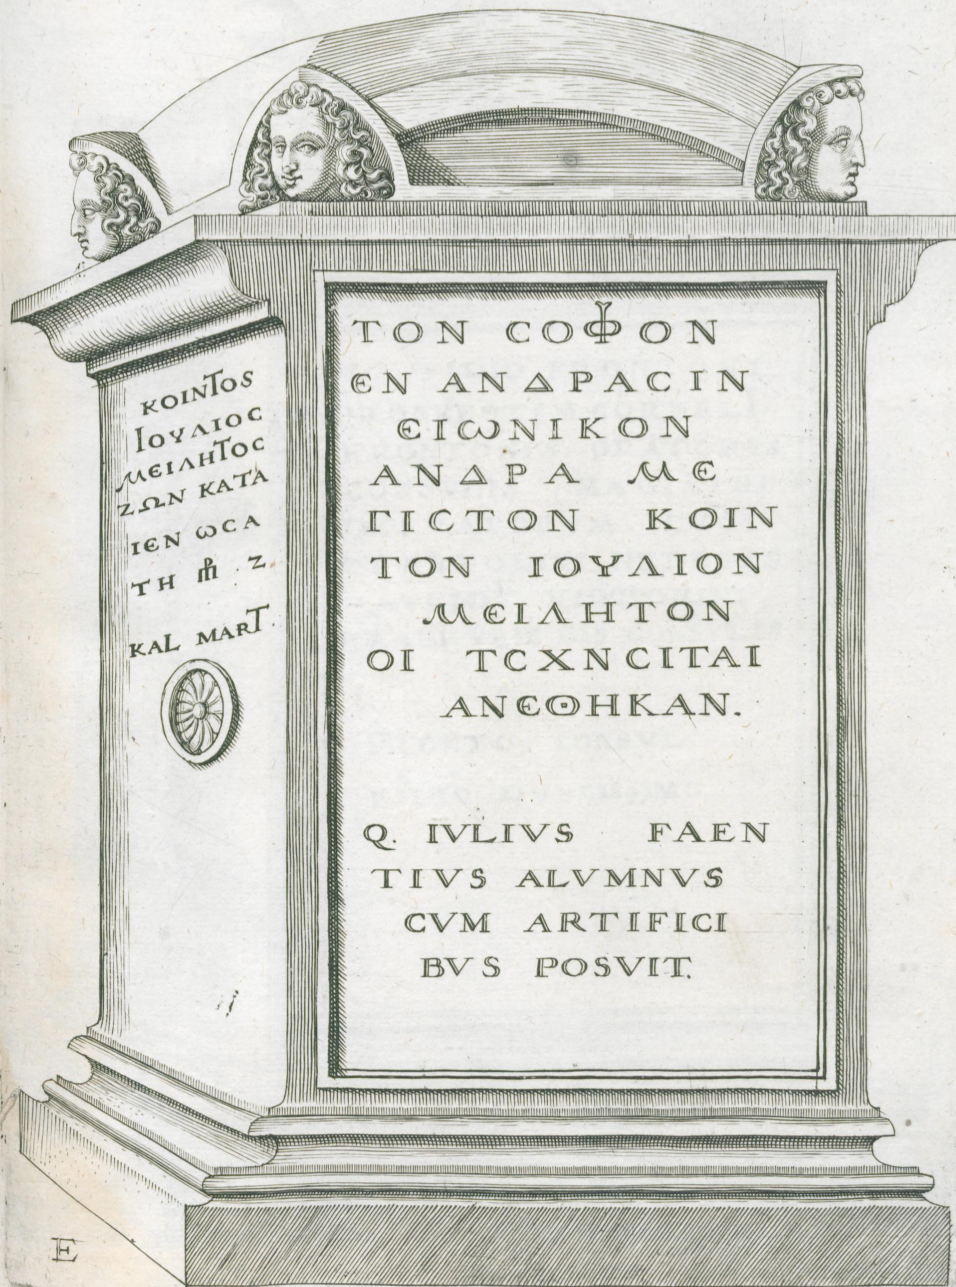 ΚΟΙΝΤΟS
ΙΟΥΛΙΟC
ΜΕΙΛΗΤΟC
ΖΩΝ ΚΑΤΑ
ΙЄΝ ωCΑ
ΤΗ Ζ
KAL MART.
ΤΟΝ CΟΦΟΝ
ЄΝ ΑΝΔΡΑCΙΝ
ЄΙωΝΙΚΟΝ
ΑΝΔΡΑ ΜЄ
ΓΙCΤΟΝ ΚΟΙΝ
ΤΟΝ ΙΟΥΛΙΟΝ
ΜЄΙΛΗΤΟΝ
ΟΙ ΤCΧΝCΙΤΑΙ
ΑΝЄΘΗΚΑΝ.
Q. IVLIVS FAEN
TIVS ALVMNVS
CVM ARTIFICI
BVS POSVIT.
E